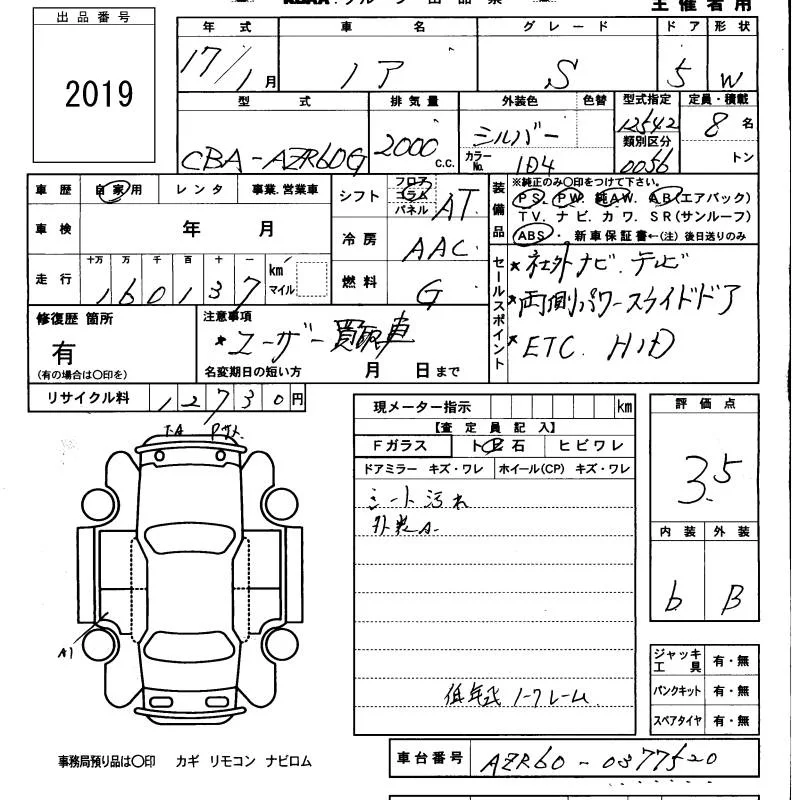 出品番号
2019
主催者用
年式 車名 グレード ドア 形状
17/1月 ノア S 5 W
型式 排気量 外装色 色替 型式指定 定員・積載
CBA-AZR60G 2000 c.c. シルバー 12542 8名
カラーNo. 1D4 類別区分 0056 トン
車歴 自家用 レンタ 事業.営業車
車検 年 月
走行 十万 万 千 百 十 一 km マイル
160137
シフト フロア コラム パネル AT
冷房 AAC
燃料 G
装備品
※純正のみ〇印をつけて下さい。
PS. PW. 純AW. AB(エアバック)
TV. ナビ. カワ. SR(サンルーフ)
ABS・ 新車保証書←(注) 後日送りのみ
セールスポイント
*社外ナビ.テレビ
*両側パワースライドドア
*ETC. HID
修復歴 箇所
有
(有の場合は〇印を)
注意事項
*ユーザー買取車
名変期日の短い方 月 日まで
リサイクル料 12730円
現メーター指示 km
【査定員記入】
Fガラス トビ石 ヒビワレ
ドアミラー キズ・ワレ ホイール(CP) キズ・ワレ
シート汚れ
外装A
低年式 ノークレーム
評価点
3.5
内装 外装
b B
ジャッキ工具 有・無
パンクキット 有・無
スペアタイヤ 有・無
A1
事務局預り品は〇印 カギ リモコン ナビロム
車台番号 AZR60-0377520